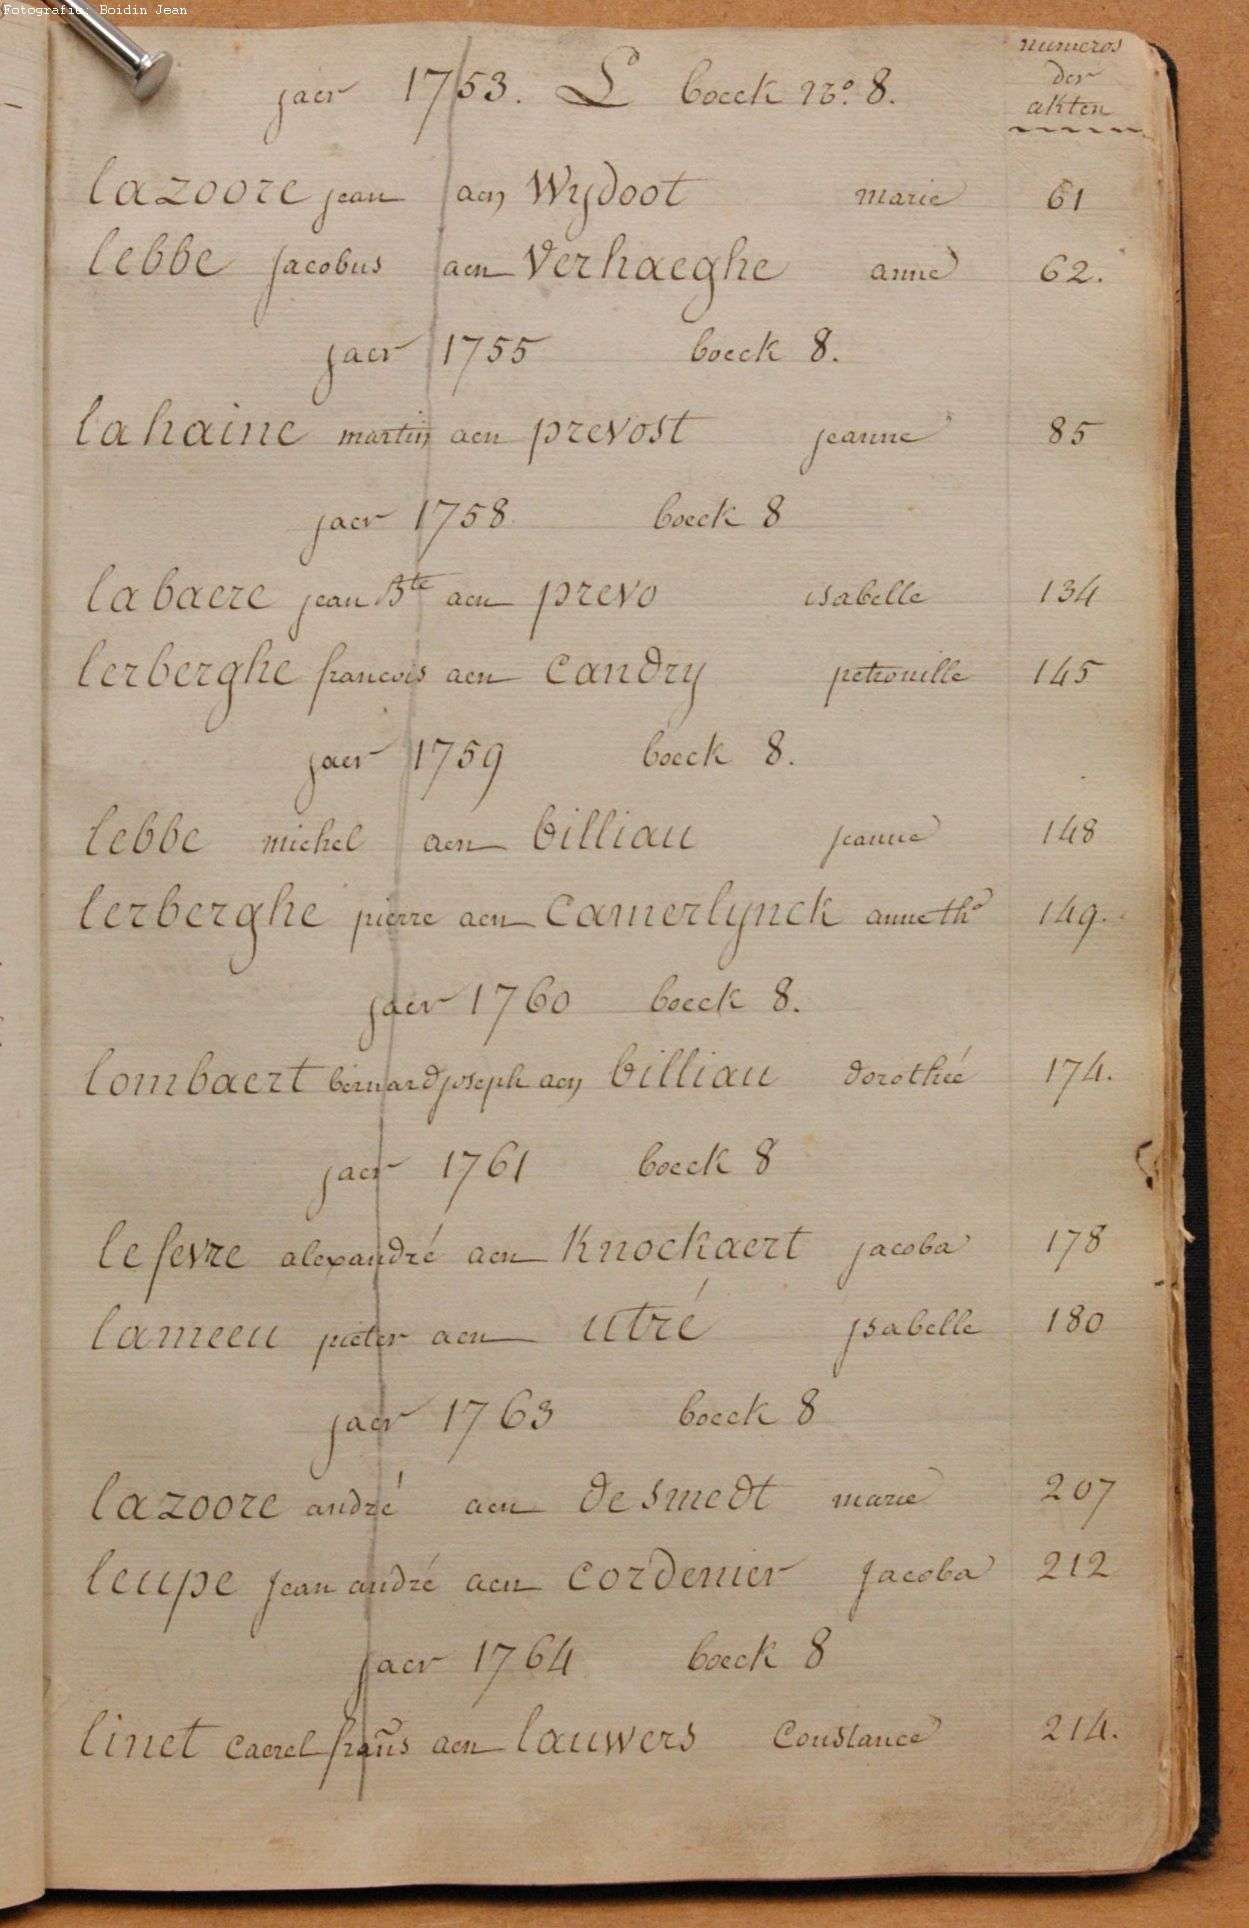 Fotografie: Boidin Jean
numeros
der
akten
jaer 1753. L boeck No. 8.
lazoore jean aen Wydoot marie 61
lebbe jacobus aen Verhaeghe anne 62.
jaer 1755 boeck 8.
lahaine martin aen prevost jeanne 85
jaer 1758 boeck 8
labaere jean Bte aen prevo isabelle 134
lerberghe francois aen Candry petronille 145
jaer 1759 boeck 8.
lebbe michel aen billiau jeanne 148
lerberghe pierre aen Camerlynck anne the 149.
jaer 1760 boeck 8.
lombaert bernard joseph aen billiau dorothée 174.
jaer 1761 boeck 8
lefevre alexandré aen Knockaert jacoba 178
lameeu pieter aen utré jsabelle 180
jaer 1763 boeck 8
lazoore andré aen desmedt marie 207
leupe jean andré aen cordenier jacoba 212
jaer 1764 boeck 8
linet Caerel frañs aen lauwers Constance 214.